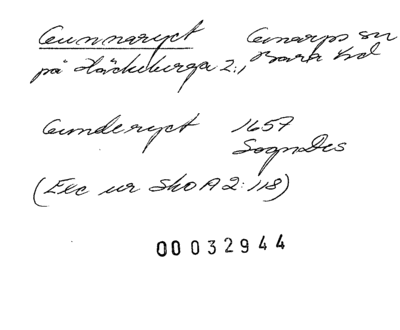 Gunnaryct Genarps sn
på Häckeberga 2:1 Bara hd
Gunderyct 1657
SognDes
(Exc ur SkoA 2:118)
00032944